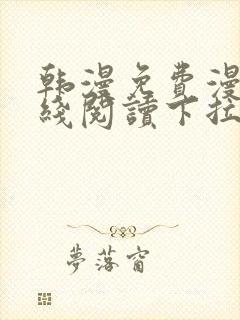 韩漫免费漫
线阅读下拉
夢落窗